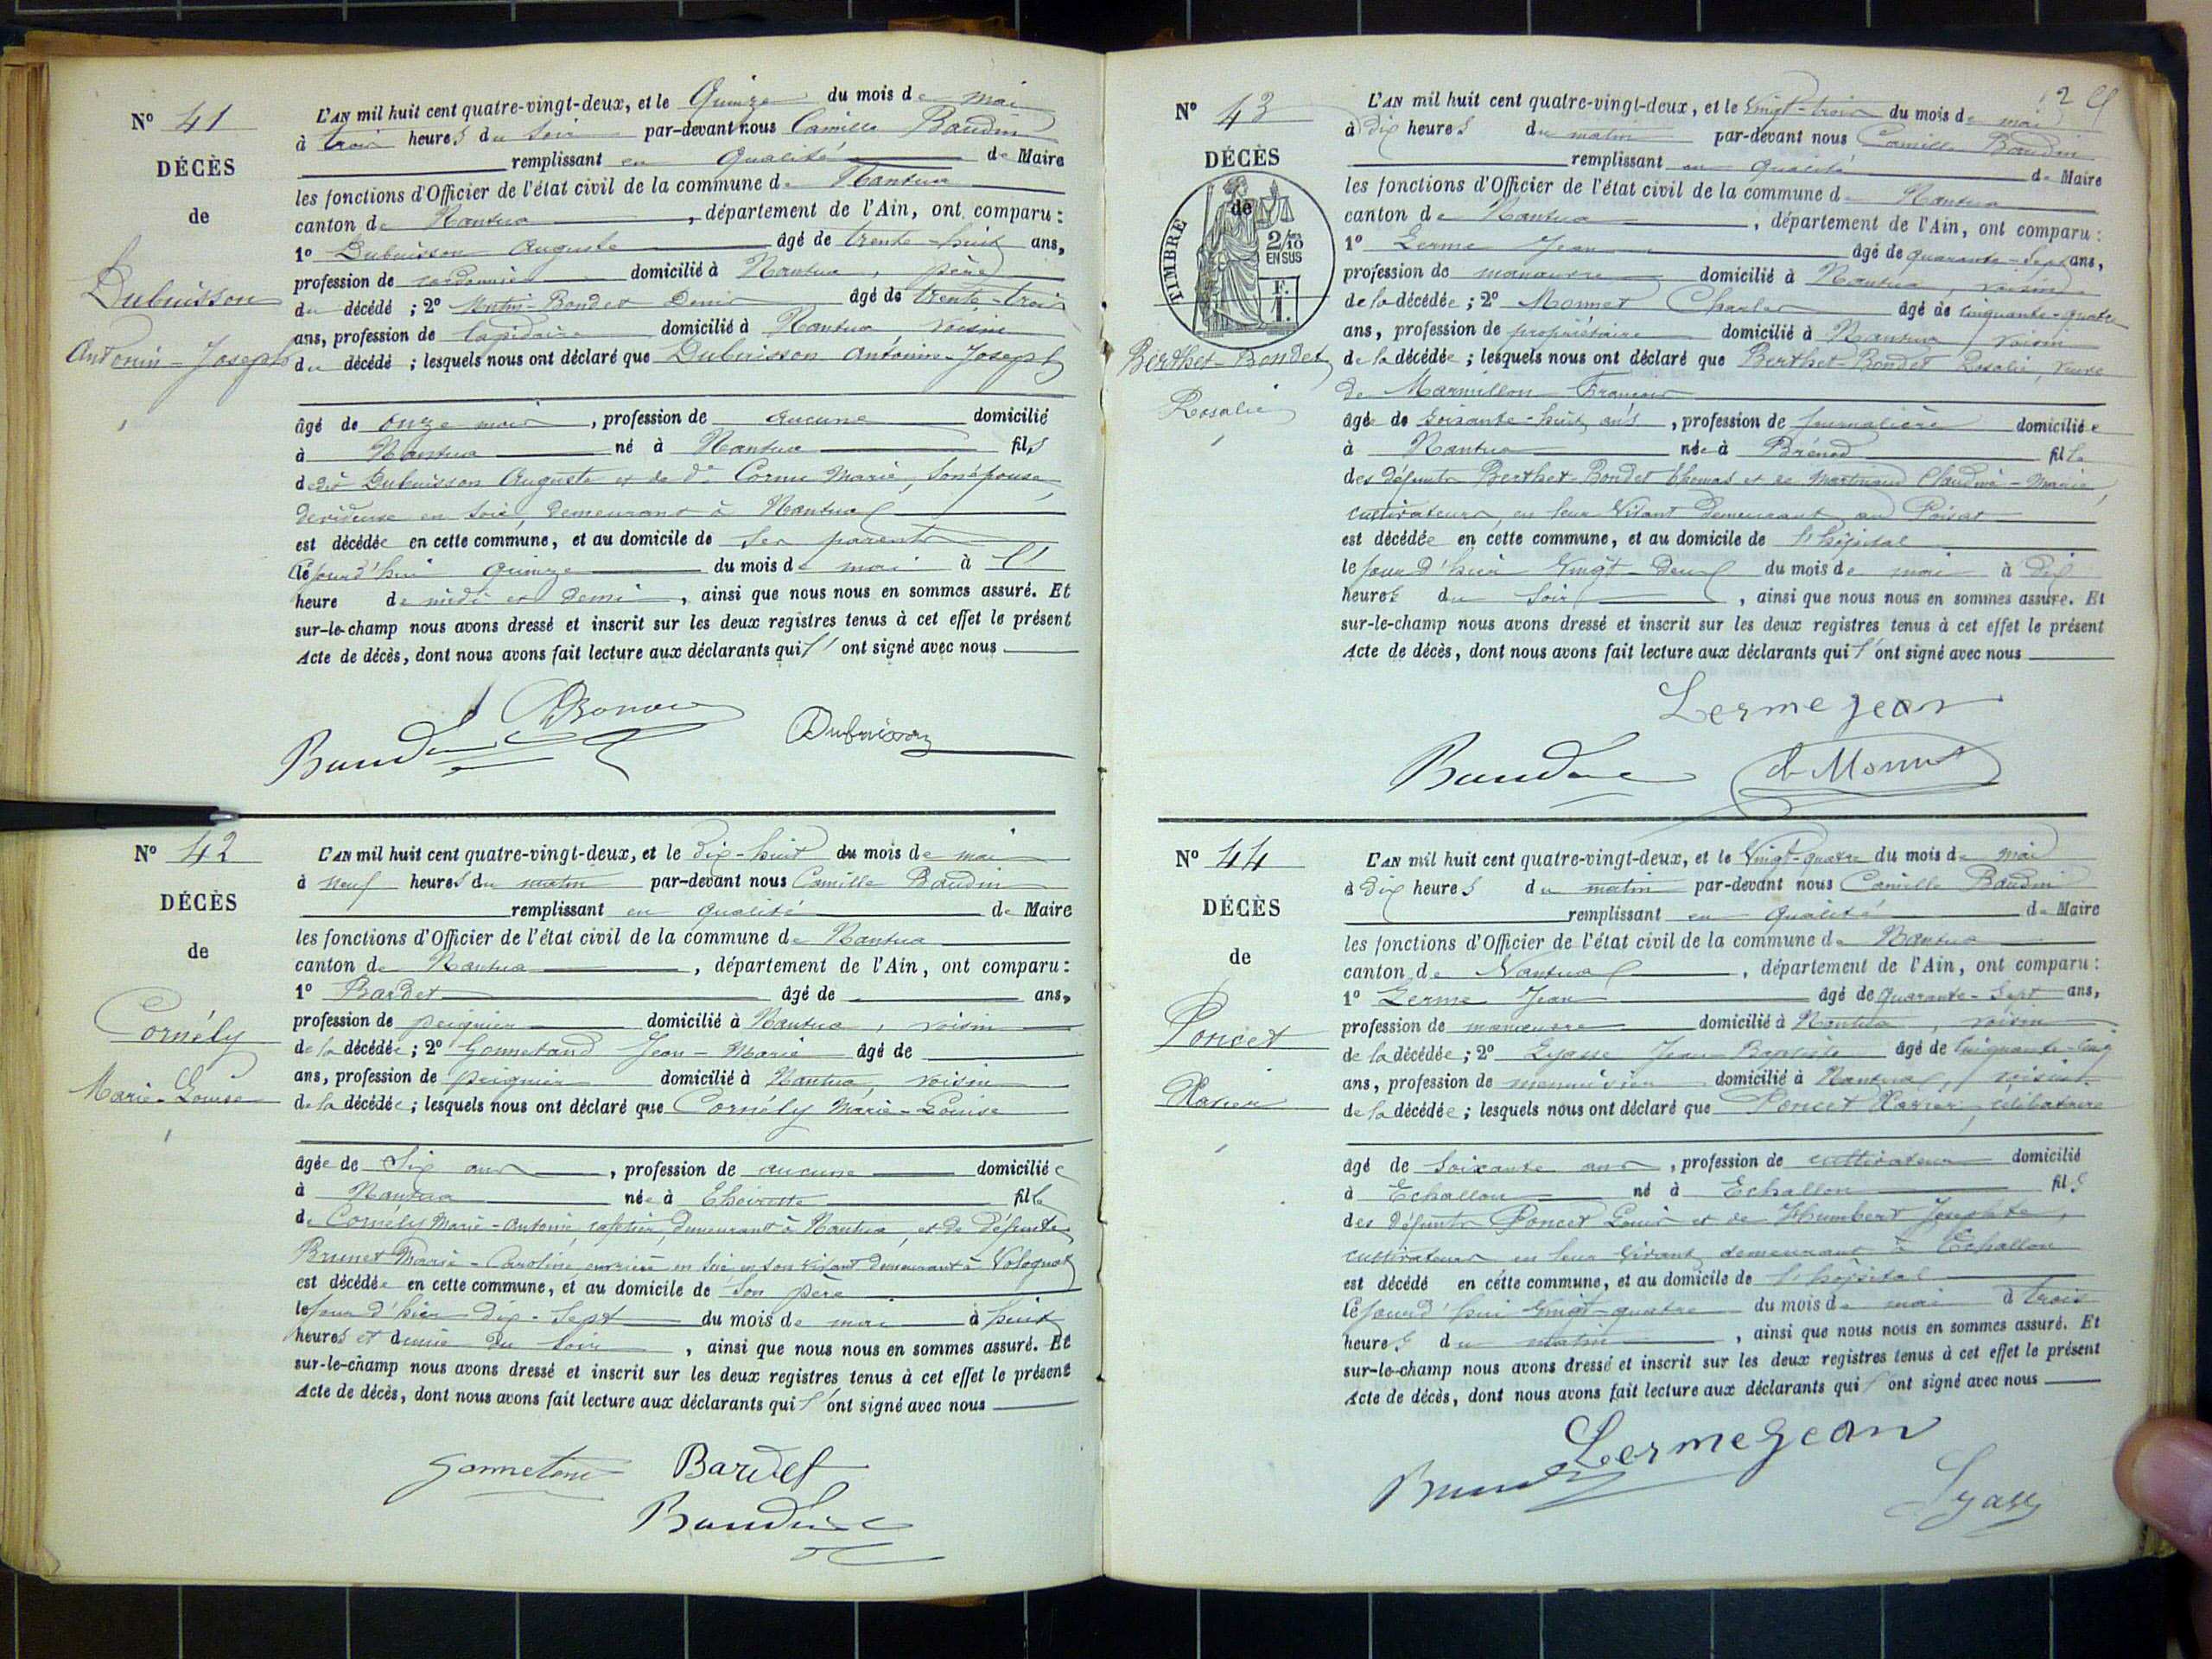 N° 41
DÉCÈS
de
Dubuisson
Antonin-Joseph
L'AN mil huit cent quatre-vingt-deux, et le Quinze du mois de mai
à trois heures du soir par-devant nous Camille Baudin
remplissant en qualité de Maire
les fonctions d'Officier de l'état civil de la commune de Nantua
canton de Nantua, département de l'Ain, ont comparu :
1° Dubuisson Auguste âgé de trente-huit ans,
profession de cordonnier domicilié à Nantua, père
du décédé ; 2° Bondet Denis âgé de trente-trois
ans, profession de lapidaire domicilié à Nantua, voisin
du décédé ; lesquels nous ont déclaré que Dubuisson Antonin-Joseph
âgé de onze mois, profession de aucune domicilié
à Nantua né à Nantua fils
dedit Dubuisson Auguste et de de Cornu Marie, son épouse,
dévideuse en soie, demeurant à Nantua
est décédé en cette commune, et au domicile de ses parents
cejourd'hui quinze du mois de mai à l'
heure de midi et demi, ainsi que nous nous en sommes assuré. Et
sur-le-champ nous avons dressé et inscrit sur les deux registres tenus à cet effet le présent
Acte de décès, dont nous avons fait lecture aux déclarants qui l'ont signé avec nous
Dubuisson
Baudin
N° 42
DÉCÈS
de
Cornély
Marie-Louise
L'AN mil huit cent quatre-vingt-deux, et le dix-huit du mois de mai
à neuf heures du matin par-devant nous Camille Baudin
remplissant en qualité de Maire
les fonctions d'Officier de l'état civil de la commune de Nantua
canton de Nantua, département de l'Ain, ont comparu :
1° Bardet âgé de ans,
profession de peignier domicilié à Nantua, voisin
de la décédée ; 2° Gonnetand Jean-Marie âgé de
ans, profession de peignier domicilié à Nantua, voisin
de la décédée ; lesquels nous ont déclaré que Cornély Marie-Louise
âgée de six ans, profession de aucune domiciliée
à Nantua née à fille
de Cornély Marie-Antoine, cafetier, demeurant à Nantua, et de défunte
Brunet Marie-Caroline, ouvrière en soie en son vivant demeurant à Volognat
est décédée en cette commune, et au domicile de son père
le jour d'hier dix-sept du mois de mai à huit
heures et demie du soir, ainsi que nous nous en sommes assuré. Et
sur-le-champ nous avons dressé et inscrit sur les deux registres tenus à cet effet le présent
Acte de décès, dont nous avons fait lecture aux déclarants qui l'ont signé avec nous
Gonnetand Bardet
Baudin
N° 43
DÉCÈS
de
TIMBRE
2/10
EN SUS
F. 1.
Berthet-Bondet
Rosalie
L'AN mil huit cent quatre-vingt-deux, et le Vingt-trois du mois de mai
à dix heures du matin par-devant nous Camille Baudin
remplissant en qualité de Maire
les fonctions d'Officier de l'état civil de la commune de Nantua
canton de Nantua, département de l'Ain, ont comparu :
1° Lerme Jean âgé de quarante-sept ans,
profession de manœuvre domicilié à Nantua, voisin
de la décédée ; 2° Monnet Charles âgé de cinquante-quatre
ans, profession de propriétaire domicilié à Nantua, voisin
de la décédée ; lesquels nous ont déclaré que Berthet-Bondet Rosalie, veuve
de Marmillon François
âgée de soixante-huit ans, profession de journalière domiciliée
à Nantua née à Brénod fille
des défunts Berthet-Bondet Thomas et de Martinand Claudine-Marie,
cultivateurs, en leur vivant demeurant au Poizat
est décédée en cette commune, et au domicile de l'hôpital
le jour d'hier vingt-deux du mois de mai à dix
heures du soir, ainsi que nous nous en sommes assuré. Et
sur-le-champ nous avons dressé et inscrit sur les deux registres tenus à cet effet le présent
Acte de décès, dont nous avons fait lecture aux déclarants qui l'ont signé avec nous
Lerme jean
Baudin Ch Monnet
N° 44
DÉCÈS
de
Poncet
Xavier
L'AN mil huit cent quatre-vingt-deux, et le Vingt-quatre du mois de mai
à dix heures du matin par-devant nous Camille Baudin
remplissant en qualité de Maire
les fonctions d'Officier de l'état civil de la commune de Nantua
canton de Nantua, département de l'Ain, ont comparu :
1° Lerme Jean âgé de quarante-sept ans,
profession de manœuvre domicilié à Nantua, voisin
de la décédée ; 2° Lyasse Jean-Baptiste âgé de cinquante-cinq
ans, profession de menuisier domicilié à Nantua, voisin
de la décédée ; lesquels nous ont déclaré que Poncet Xavier, célibataire
âgé de soixante ans, profession de cultivateur domicilié
à Echallon né à Echallon fils
des défunts Poncet Louis et de Humbert Josephte,
cultivateurs en leur vivant demeurant à Echallon
est décédé en cette commune, et au domicile de l'hôpital
cejourd'hui vingt-quatre du mois de mai à trois
heures du matin, ainsi que nous nous en sommes assuré. Et
sur-le-champ nous avons dressé et inscrit sur les deux registres tenus à cet effet le présent
Acte de décès, dont nous avons fait lecture aux déclarants qui l'ont signé avec nous
Lerme Jean
Baudin Lyasse